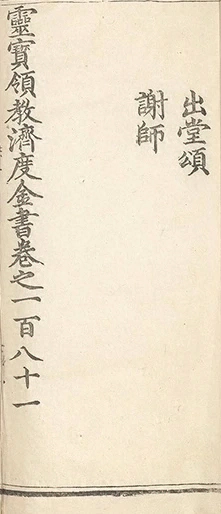 出堂頌
謝師
靈寳領教濟度金書卷之一百八十一